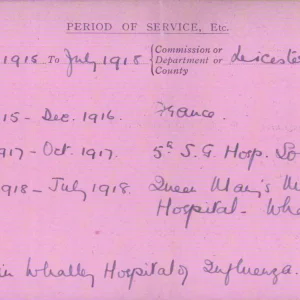 PERIOD OF SERVICE, Etc.
1915 To July 1918 { Commission or Department or County { Leicester
15 - Dec. 1916. France.
1917 - Oct. 1917. 5th S. G. Hosp.
1918 - July 1918. Queen Mary's
Hospital - Wha
in Whalley Hospital of Influenza.